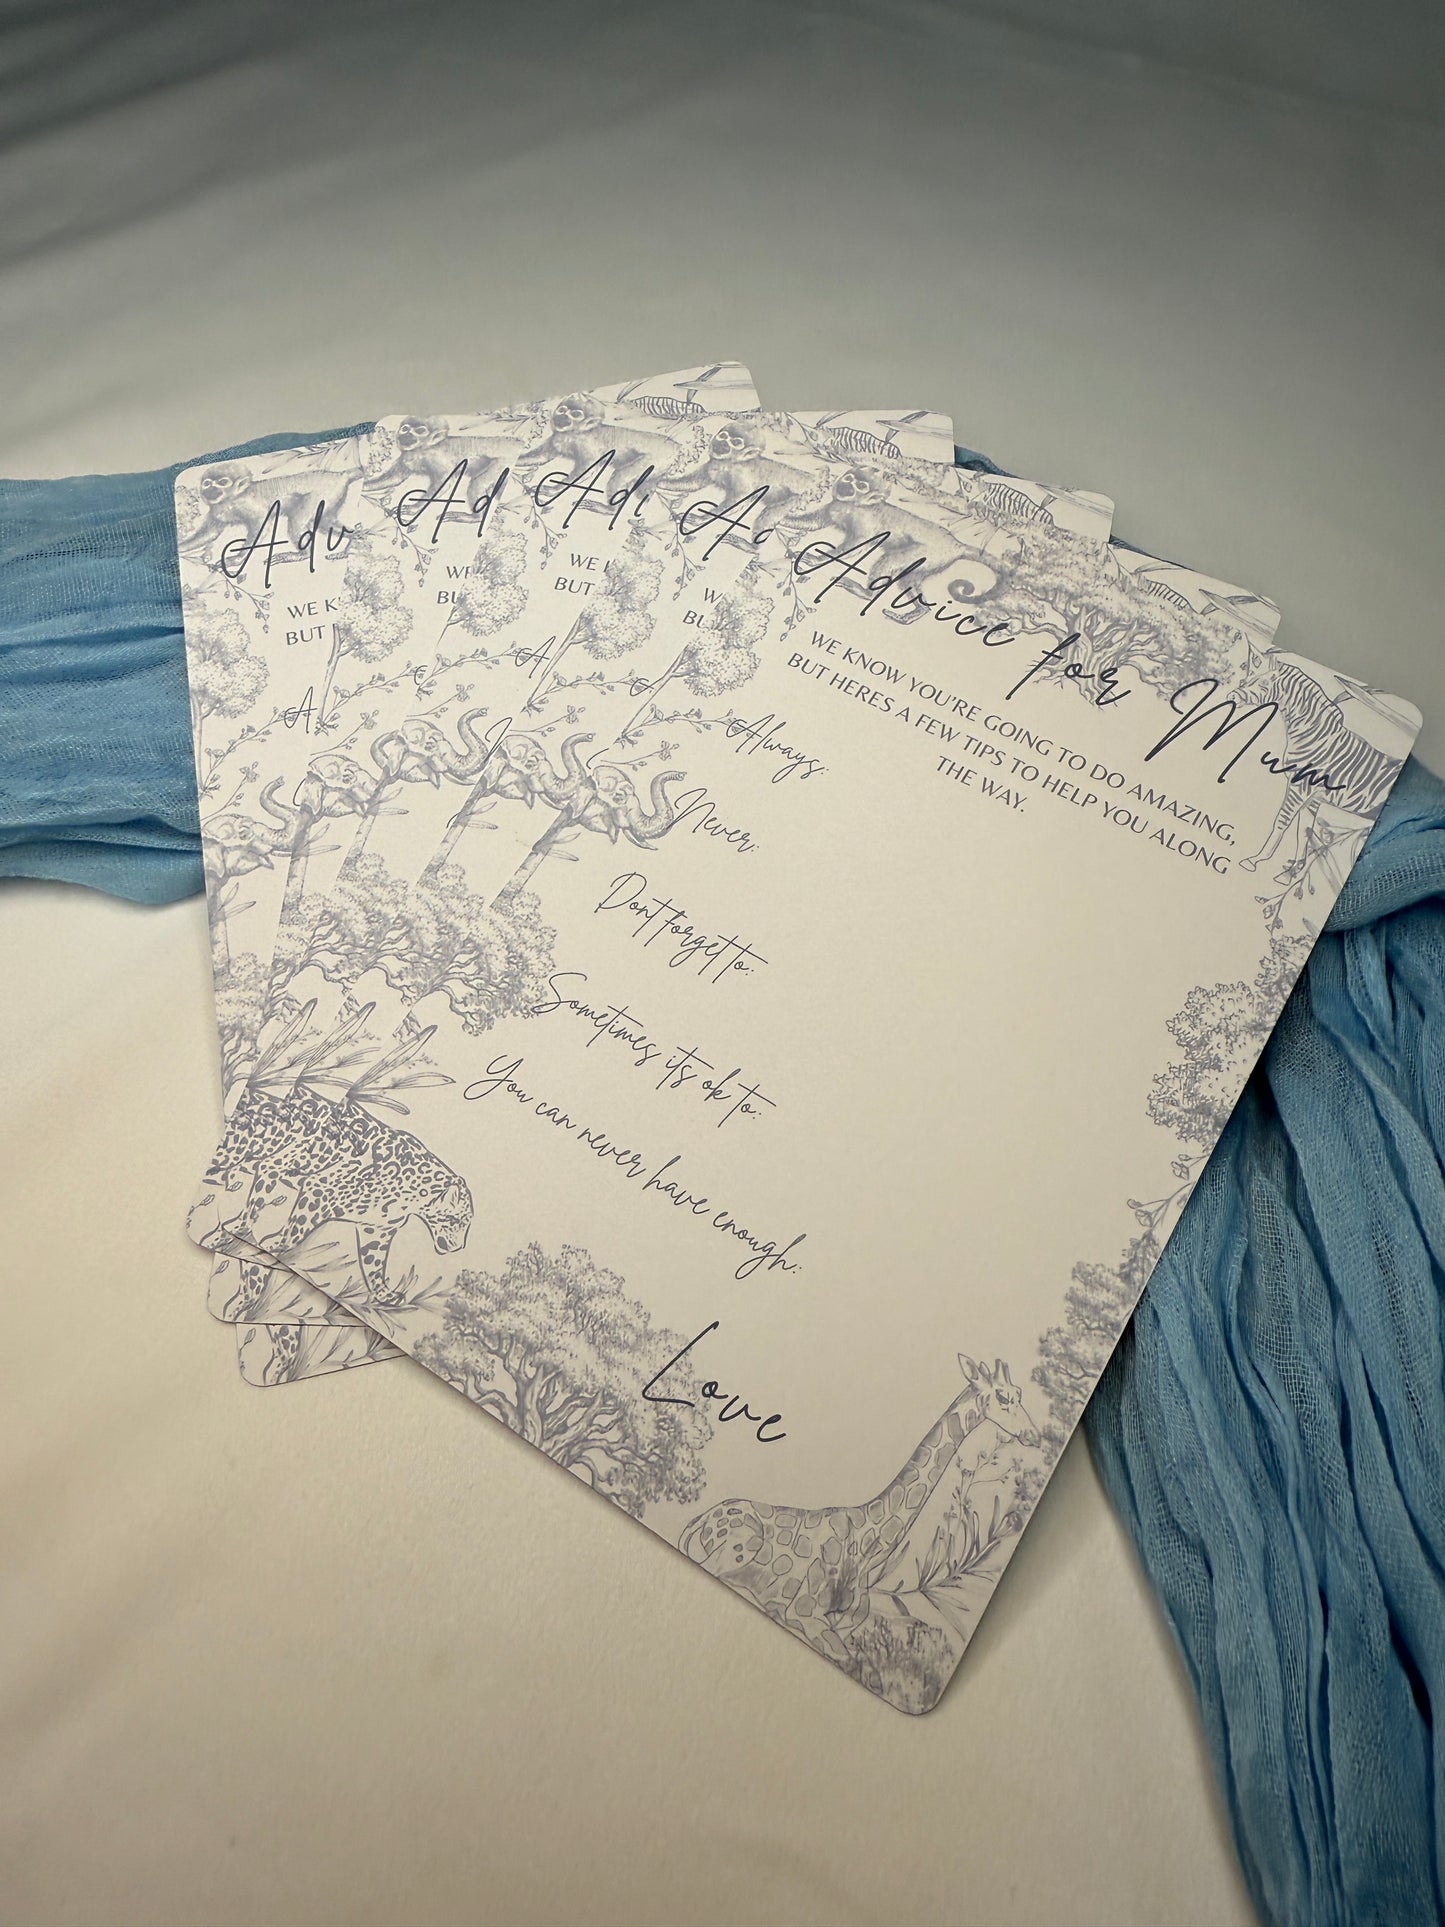 Adv
WE K
BUT
A
Ad
WE
BU
Ad
WE
BUT
A
A
W
BU
Advice for Mum
WE KNOW YOU'RE GOING TO DO AMAZING,
BUT HERES A FEW TIPS TO HELP YOU ALONG
THE WAY.
Always:
Never:
Dont forget to:
Sometimes its ok to:
You can never have enough:
Love